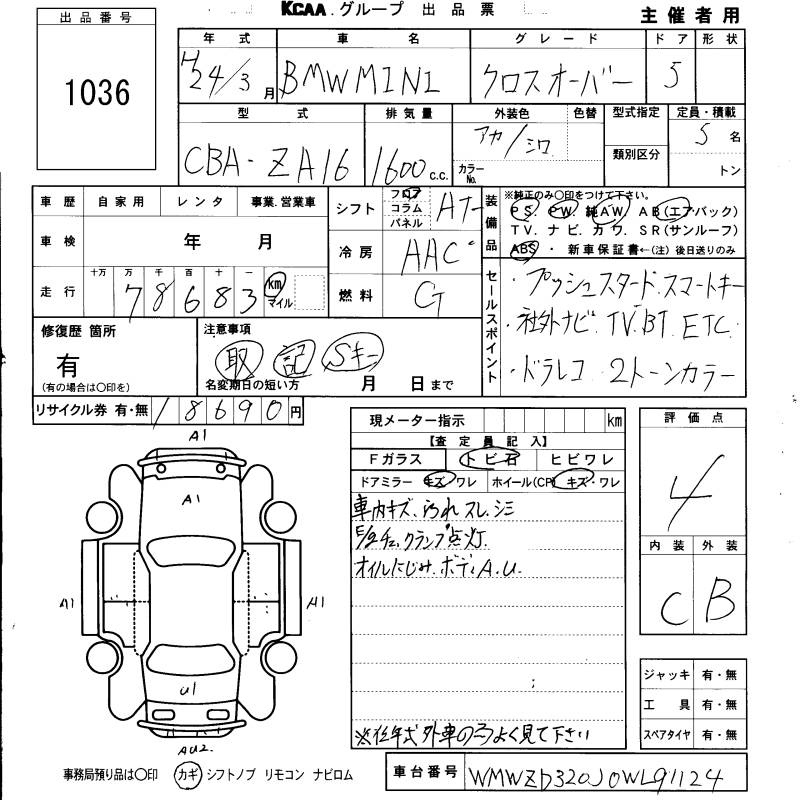 KCAA グループ 出品票
主催者用
出品番号
1036
年式 車名 グレード ドア 形状
H24/3月 BMWMINI クロスオーバー 5
型式 排気量 外装色 色替 型式指定 定員・積載
CBA-ZA16 1600c.c. アカ/シロ カラーNo. 類別区分 5名 トン
車歴 自家用 レンタ 事業.営業車
車検 年 月
走行 十万 万 千 百 十 一
78683 km マイル
シフト フロア コラム パネル AT
冷房 AAC
燃料 G
装備品 ※純正のみ○印をつけて下さい。
PS. PW. 純AW. AB(エアバック)
TV. ナビ. カワ. SR(サンルーフ)
ABS・新車保証書←(注)後日送りのみ
セールスポイント
・プッシュスタード.スマートキー
・社外ナビ.TV.BT.ETC.
・ドラレコ 2トーンカラー
修復歴 箇所
有
(有の場合は○印を)
注意事項
取 記 Sキー
名変期日の短い方 月 日まで
リサイクル券 有・無 18690円
現メーター指示 km
【査定員記入】
Fガラス トビ石 ヒビワレ
ドアミラー キズ・ワレ ホイール(CP) キズ・ワレ
車内キズ、汚れスレ.シミ
E/gチェックランプ点灯.
オイルにじみ.ボディA.U.
※低年式外車の為よく見て下さい
評価点
4
内装 外装
C B
ジャッキ 有・無
工具 有・無
スペアタイヤ 有・無
A1
A1
A1 A1
U1
AU2.
事務局預り品は○印 カギ シフトノブ リモコン ナビロム
車台番号 WMWZD320J0WL91124